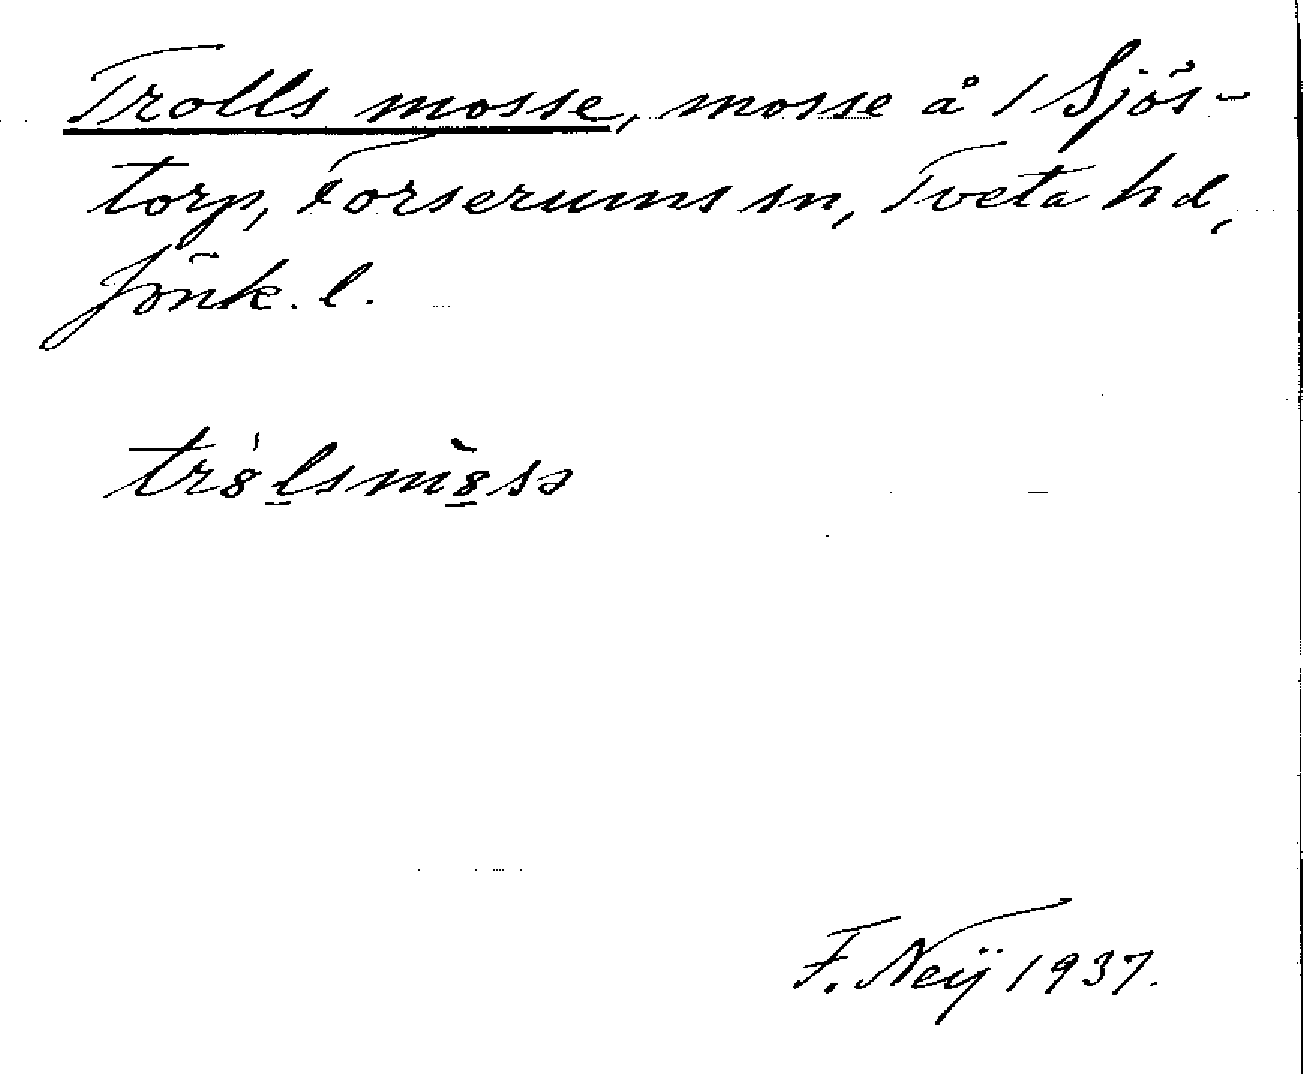 Trolls mosse, mosse å 1 Sjös-
torp, Forserums sn, Tveta hd,
Jönk. l.
tr8́l̠sm8̠̀sə
F. Neij 1937.